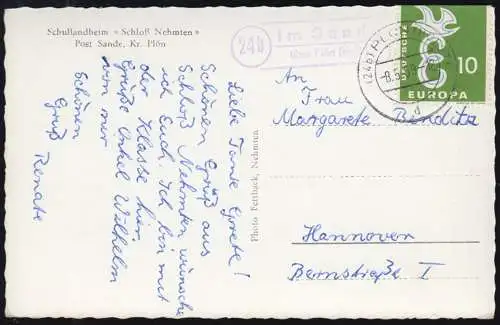 Schullandheim »Schloß Nehmten«
Post Sande, Kr. Plön
Liebe Tante Grete!
Schönen Gruß aus
Schloß Nehmten wünsche
ich Euch. Ich bin mit
der Klasse hier.
Grüße Onkel Wilhelm
von mir
Schönen
Gruß
Renate
Photo Nehmten
24b
Im Sande
(24b) PLÖN
-8.
d
DEUTSCHE
10
EUROPA
An
Frau
Margarete Benditz
Hannover
Bernstraße I